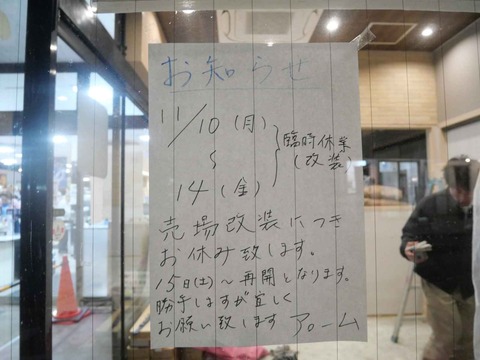 お知らせ
11/10(月)
〜
14(金)
臨時休業
(改装
売場改装につき
お休み致します。
15日(土)〜再開となります。
勝手しますが宜しく
お願い致します アローム